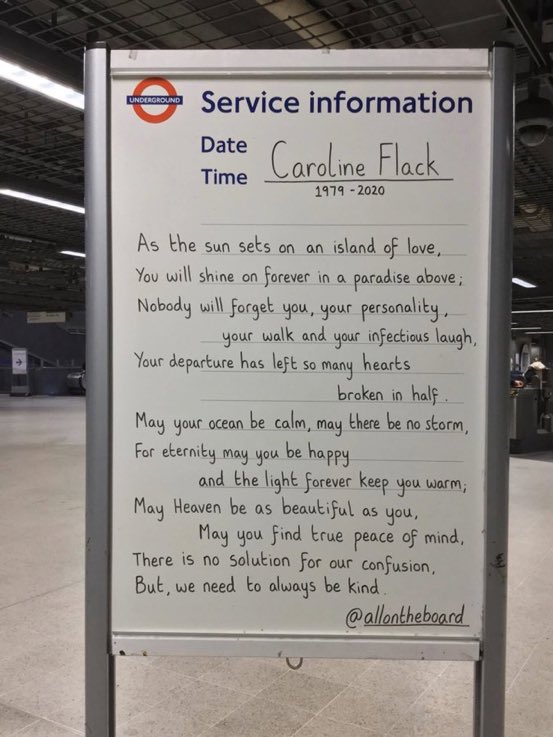 UNDERGROUND
Service information
Date
Time
Caroline Flack
1979 - 2020
As the sun sets on an island of love,
You will shine on forever in a paradise above;
Nobody will forget you, your personality,
your walk and your infectious laugh,
Your departure has left so many hearts
broken in half.
May your ocean be calm, may there be no storm,
For eternity may you be happy
and the light forever keep you warm;
May Heaven be as beautiful as you,
May you find true peace of mind,
There is no solution for our confusion,
But, we need to always be kind.
@allontheboard